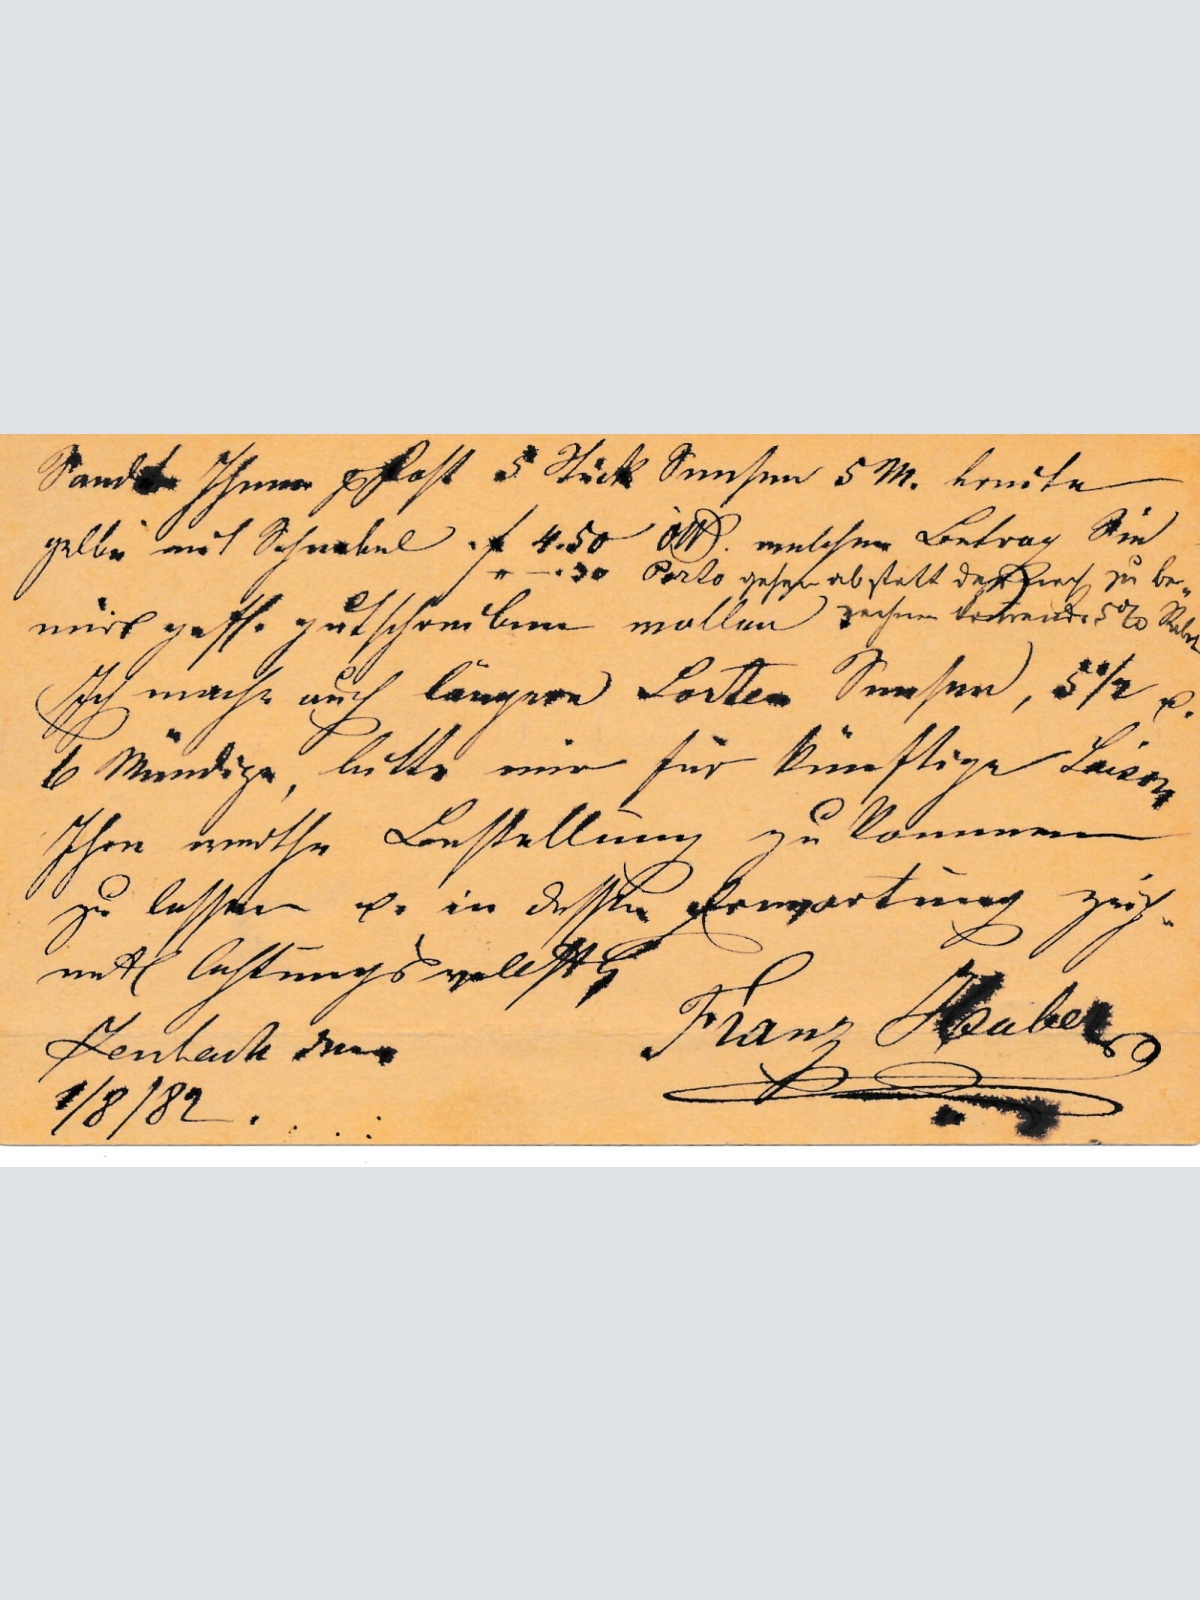 Sandte Ihnen p Post 5 Stück Sensen 5 M. breite
gelbe mit Schnabel . f 4.50 öW. welchen Betrag Sie
" — .30 Porto gehen abstatt dessen zu be-
mir gefl. gutschreiben wollen 5% Rabat
Ich mache auch längere Sorten Sensen, 5 1/2 u.
6 Mündige, bitte mir für künftige Saison
Ihre werthe Bestellung zu kommen
zu lassen u. in dessen Erwartung zeich-
net Achtungsvollst
Franz Huber
Jenbach den
1/8/82.